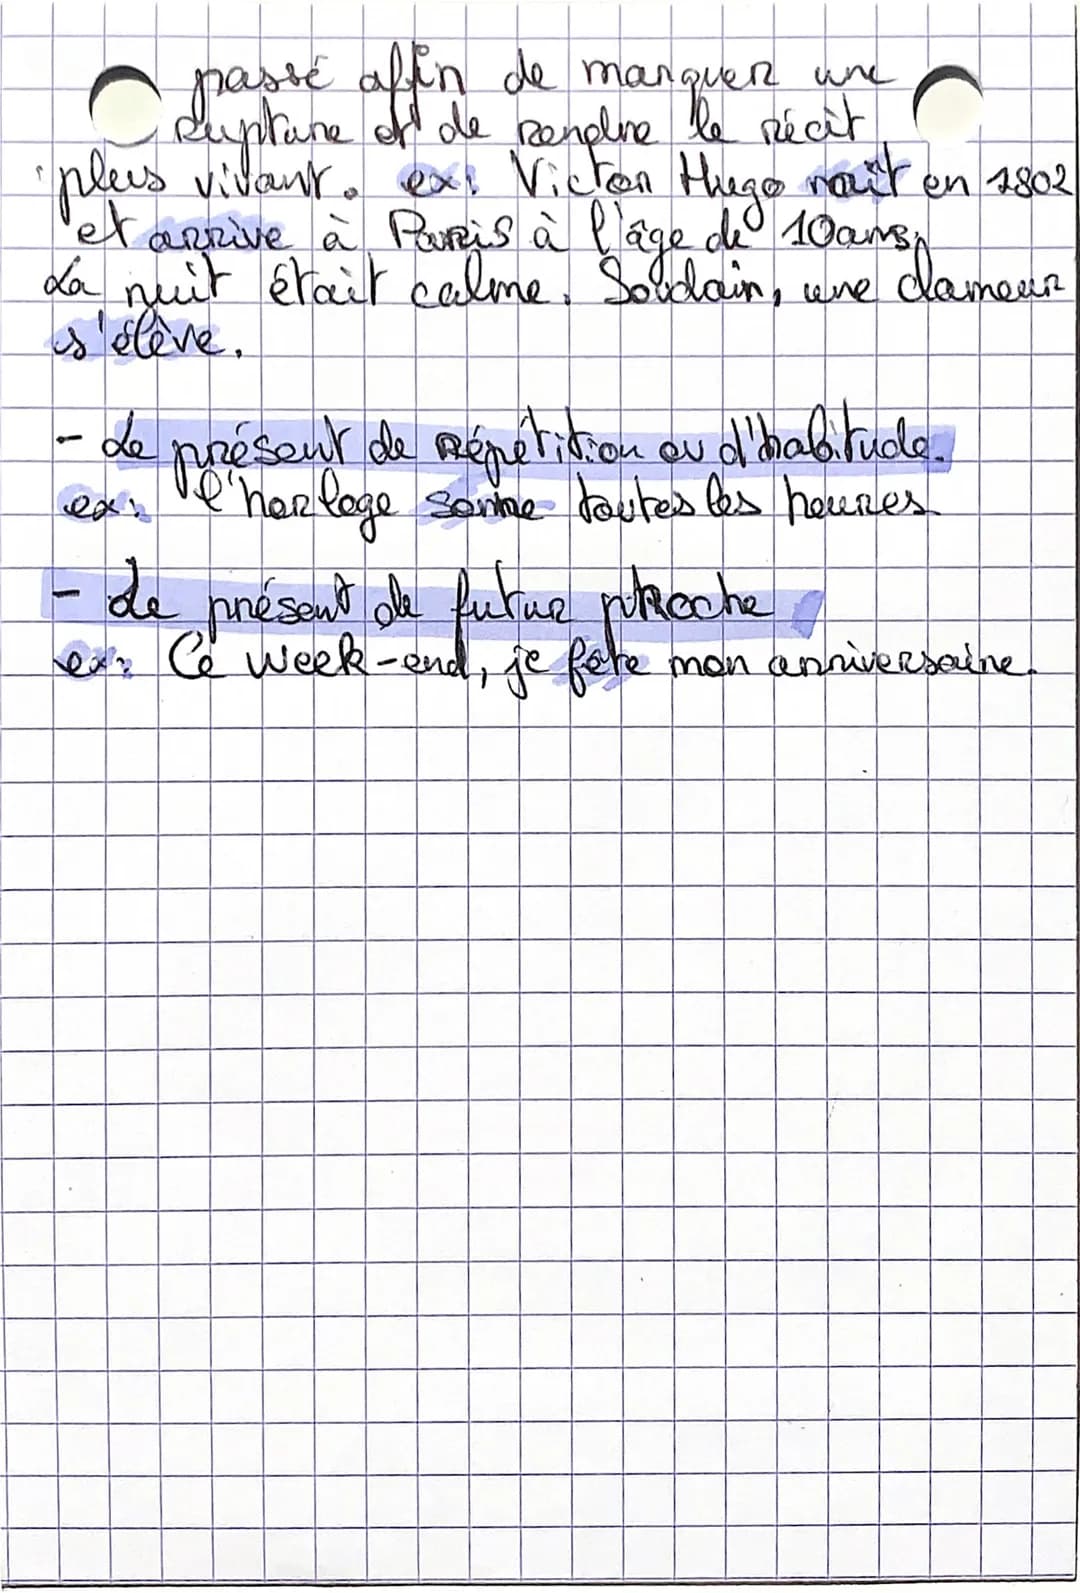 passé affin de marquer une
rupture et de rendre le récit
plus vivant. ex: Victor Hugo naît en 1802
et arrive à Paris à l'âge de 10ans.
La nuit était calme. Soudain, une clameur
s'élève.
- Le présent de répétition ou d'habitude.
ex: l'horloge sonne toutes les heures.
- Le présent de futur proche
ex: Ce week-end, je fête mon anniversaire.